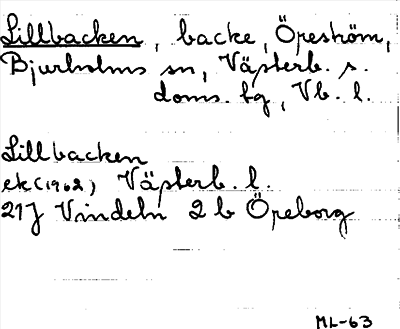 Lillbacken, backe, Öreström,
Bjurholms sn, Västerb. s.
doms. tg, Vb. l.
Lillbacken
ek (1962) Västerb. l.
21J Vindeln 2 b Öreborg
ML-63